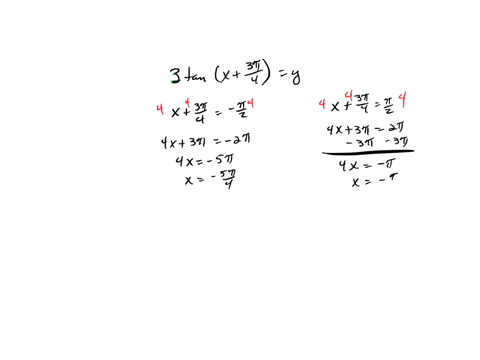 3 tan (x + 3π/4) = y
4 x + 4 3π/4 = -π/2 4
4x + 3π = -2π
4x = -5π
x = -5π/4
4 x + 4 3π/4 = π/2 4
4x + 3π = 2π
-3π -3π
4x = -π
x = -π